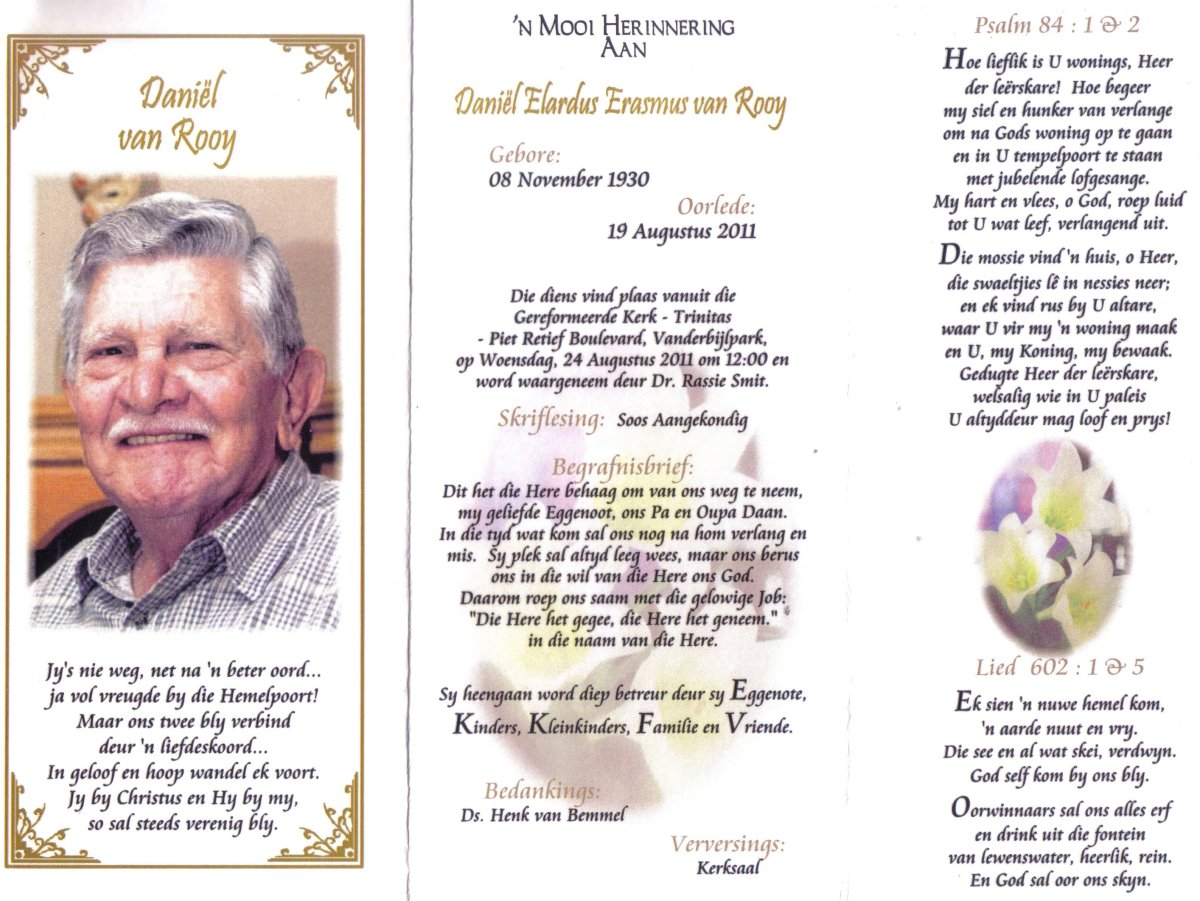 Daniël
van Rooy
Jy's nie weg, net na 'n beter oord...
ja vol vreugde by die Hemelpoort!
Maar ons twee bly verbind
deur 'n liefdeskoord...
In geloof en hoop wandel ek voort.
Jy by Christus en Hy by my,
so sal steeds verenig bly.
'n Mooi Herinnering
Aan
Daniël Elardus Erasmus van Rooy
Gebore:
08 November 1930
Oorlede:
19 Augustus 2011
Die diens vind plaas vanuit die
Gereformeerde Kerk - Trinitas
- Piet Retief Boulevard, Vanderbijlpark,
op Woensdag, 24 Augustus 2011 om 12:00 en
word waargeneem deur Dr. Rassie Smit.
Skriflesing: Soos Aangekondig
Begrafnisbrief:
Dit het die Here behaag om van ons weg te neem,
my geliefde Eggenoot, ons Pa en Oupa Daan.
In die tyd wat kom sal ons nog na hom verlang en
mis. Sy plek sal altyd leeg wees, maar ons berus
ons in die wil van die Here ons God.
Daarom roep ons saam met die gelowige Job:
"Die Here het gegee, die Here het geneem."
in die naam van die Here.
Sy heengaan word diep betreur deur sy Eggenote,
Kinders, Kleinkinders, Familie en Vriende.
Bedankings:
Ds. Henk van Bemmel
Verversings:
Kerksaal
Psalm 84 : 1 & 2
Hoe lieflik is U wonings, Heer
der leërskare! Hoe begeer
my siel en hunker van verlange
om na Gods woning op te gaan
en in U tempelpoort te staan
met jubelende lofgesange.
My hart en vlees, o God, roep luid
tot U wat leef, verlangend uit.
Die mossie vind 'n huis, o Heer,
die swaeltjies lê in nessies neer;
en ek vind rus by U altare,
waar U vir my 'n woning maak
en U, my Koning, my bewaak.
Gedugte Heer der leërskare,
welsalig wie in U paleis
U altyddeur mag loof en prys!
Lied 602 : 1 & 5
Ek sien 'n nuwe hemel kom,
'n aarde nuut en vry.
Die see en al wat skei, verdwyn.
God self kom by ons bly.
Oorwinnaars sal ons alles erf
en drink uit die fontein
van lewenswater, heerlik, rein.
En God sal oor ons skyn.